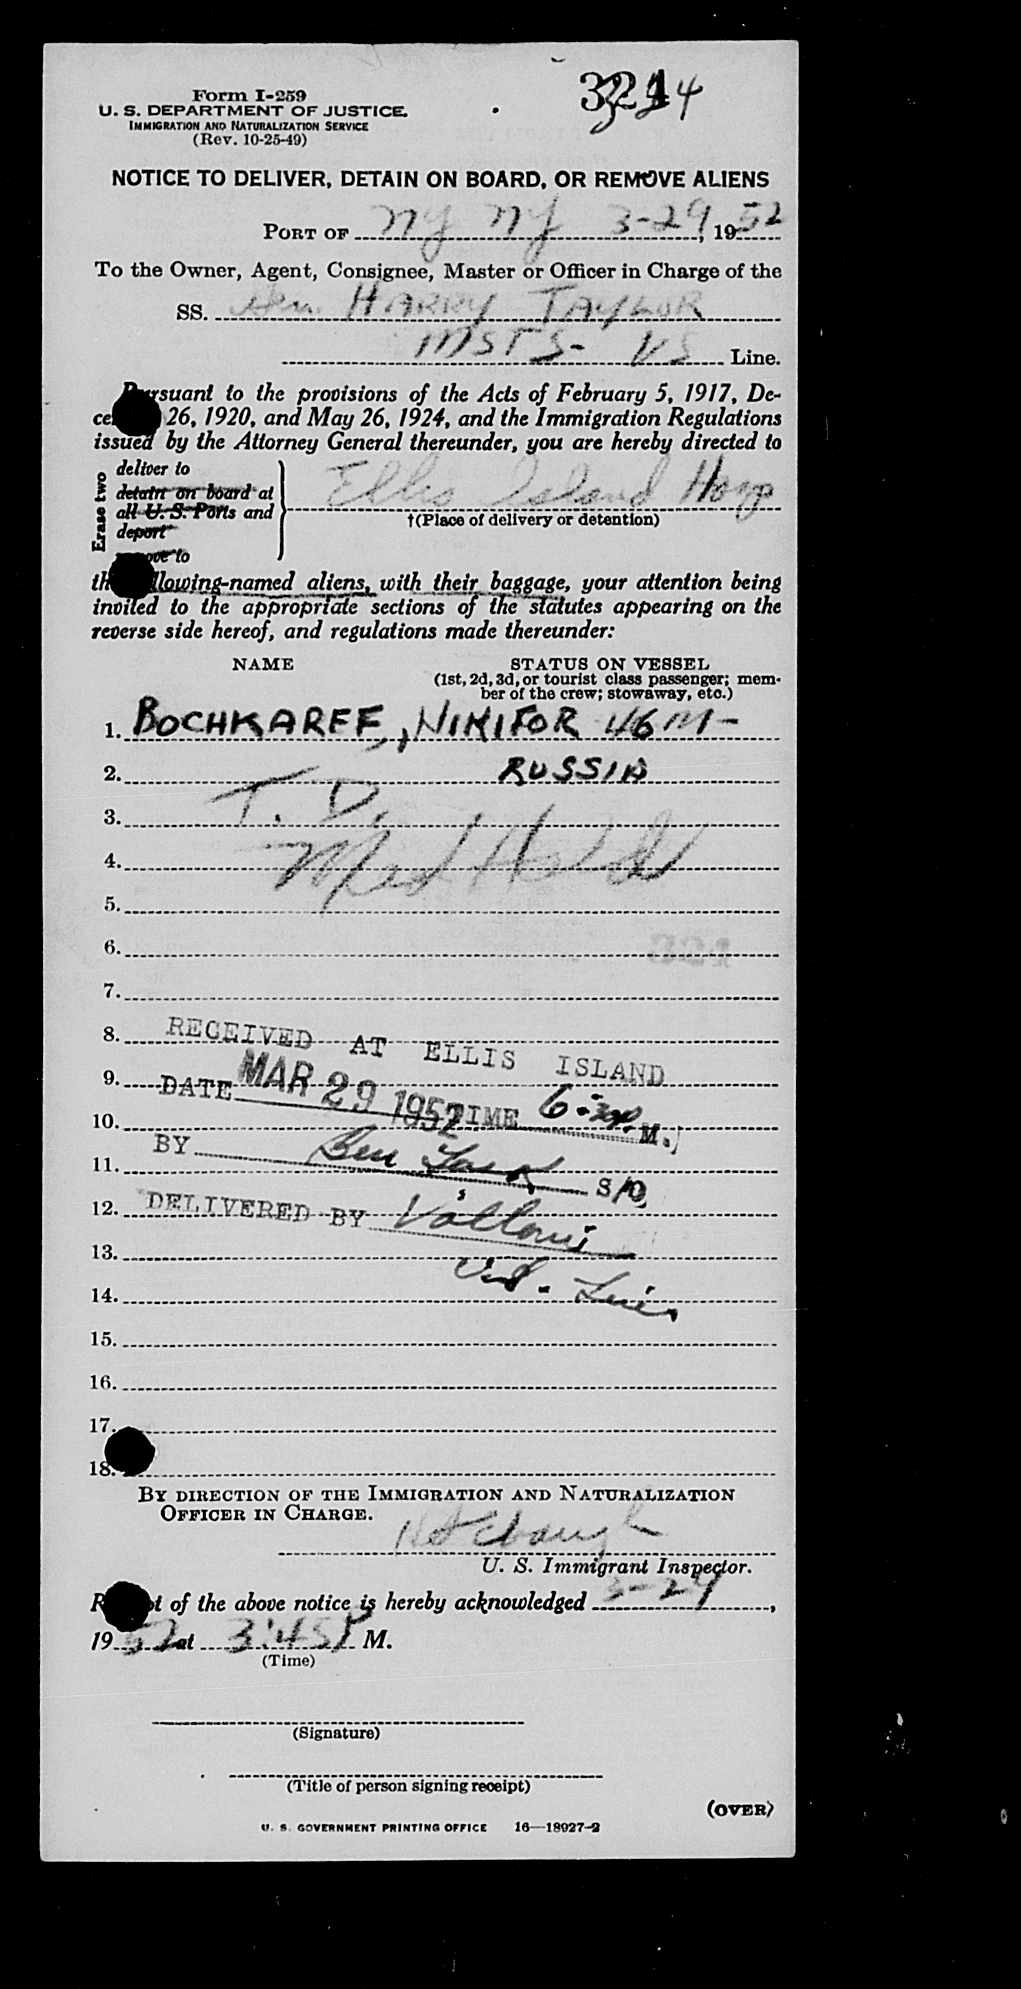 Form I-259
U. S. DEPARTMENT OF JUSTICE.
IMMIGRATION AND NATURALIZATION SERVICE
(Rev. 10-25-49)
NOTICE TO DELIVER, DETAIN ON BOARD, OR REMOVE ALIENS
PORT OF NY NY 3-29, 1952
To the Owner, Agent, Consignee, Master or Officer in Charge of the
SS. Gen. HARRY TAYLOR
MSTS- US Line.
Pursuant to the provisions of the Acts of February 5, 1917, De-
26, 1920, and May 26, 1924, and the Immigration Regulations
issued by the Attorney General thereunder, you are hereby directed to
Erase two
deliver to
detain on board at
all U. S. Ports and
deport
remove to
Ellis Island Hosp
†(Place of delivery or detention)
the following-named aliens, with their baggage, your attention being
invited to the appropriate sections of the statutes appearing on the
reverse side hereof, and regulations made thereunder:
NAME STATUS ON VESSEL
(1st, 2d, 3d, or tourist class passenger; mem-
ber of the crew; stowaway, etc.)
1. BOCHKAREF, NIKIFOR 46 M-
2. RUSSIA
3. T. D.
4. Med Hold
5.
6.
7.
8. RECEIVED AT ELLIS ISLAND
9. DATE MAR 29 1952 TIME 6:30 P.M.
10.
11. BY Ben S/O
12. DELIVERED BY
13.
14.
15.
16.
17.
18.
BY DIRECTION OF THE IMMIGRATION AND NATURALIZATION
OFFICER IN CHARGE.
U. S. Immigrant Inspector.
Receipt of the above notice is hereby acknowledged 3-29,
1952 at 3:45 P M.
(Time)
(Signature)
(Title of person signing receipt)
(OVER)
U. S. GOVERNMENT PRINTING OFFICE 16—18927-2